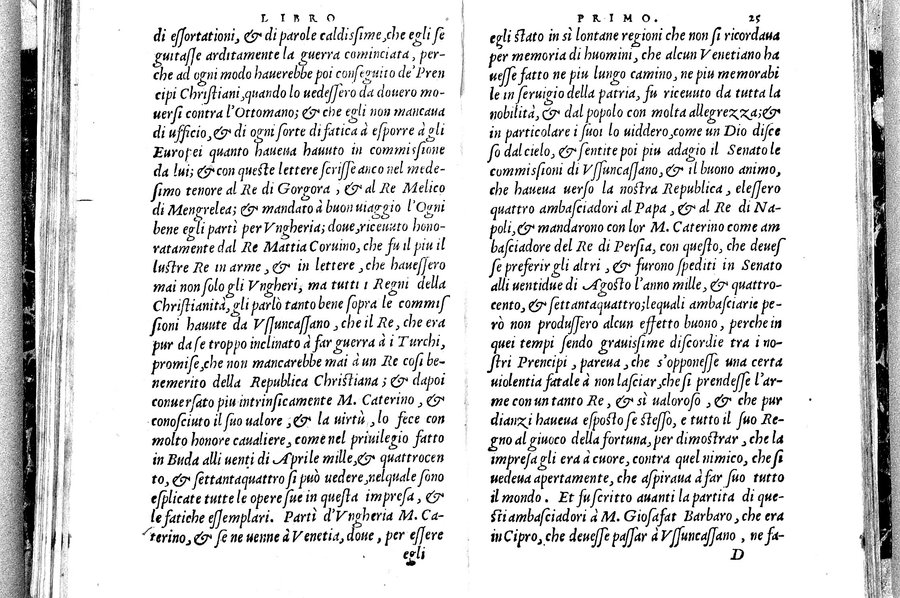 LIBRO
di essortationi, & di parole caldissime, che egli se
guitasse arditamente la guerra cominciata, per-
che ad ogni modo hauerebbe poi conseguito de'Pren
cipi Christiani, quando lo uedessero da douero mo-
uersi contra l'Ottomano; & che egli non mancaua
di ufficio, & di ogni sorte di fatica à esporre à gli
Europei quanto haueua hauuto in commissione
da lui; & con queste lettere scrisse anco nel mede-
simo tenore al Re di Gorgora, & al Re Melico
di Mengrelea; & mandato à buon uiaggio l'Ogni
bene egli partì per Vngheria; doue, riceuuto hono-
ratamente dal Re Mattia Coruino, che fu il piu il
lustre Re in arme, & in lettere, che hauessero
mai non solo gli Vngheri, ma tutti i Regni della
Christianità, gli parlò tanto bene sopra le commis
sioni hauute da Vssuncassano, che il Re, che era
pur da se troppo inclinato à far guerra à i Turchi,
promise, che non mancarebbe mai à un Re cosi be-
nemerito della Republica Christiana; & dapoi
conuersato piu intrinsicamente M. Caterino, &
conosciuto il suo ualore, & la uirtù, lo fece con
molto honore caualiere, come nel priuilegio fatto
in Buda alli uenti di Aprile mille, & quattrocen
to, & settantaquattro si può uedere, nelquale sono
esplicate tutte le opere sue in questa impresa, &
le fatiche essemplari. Partì d'Vngheria M. Ca-
terino, & se ne uenne à Venetia, doue, per essere
egli
PRIMO. 25
egli stato in sì lontane regioni che non si ricordaua
per memoria di huomini, che alcun Venetiano ha
uesse fatto ne piu lungo camino, ne piu memorabi
le in seruigio della patria, fu riceuuto da tutta la
nobilità, & dal popolo con molta allegrezza; &
in particolare i suoi lo uiddero, come un Dio disce
so dal cielo, & sentite poi piu adagio il Senato le
commissioni di Vssuncassano, & il buono animo,
che haueua uerso la nostra Republica, elessero
quattro ambasciadori al Papa, & al Re di Na-
poli, & mandarono con lor M. Caterino come am
basciadore del Re di Persia, con questo, che deues
se preferir gli altri, & furono spediti in Senato
alli uentidue di Agosto l'anno mille, & quattro-
cento, & settantaquattro; lequali ambasciarie pe-
rò non produssero alcun effetto buono, perche in
quei tempi sendo grauissime discordie tra i no-
stri Prencipi, pareua, che s'opponesse una certa
uiolentia fatale à non lasciar, che si prendesse l'ar-
me con un tanto Re, & sì ualoroso, & che pur
dianzi haueua esposto se stesso, e tutto il suo Re-
gno al giuoco della fortuna, per dimostrar, che la
impresa gli era à cuore, contra quel nimico, che si
uedeua apertamente, che aspiraua à far suo tutto
il mondo. Et fu scritto auanti la partita di que-
sti ambasciadori à M. Giosafat Barbaro, che era
in Cipro, che deuesse passar à Vssuncassano, ne fa-
D